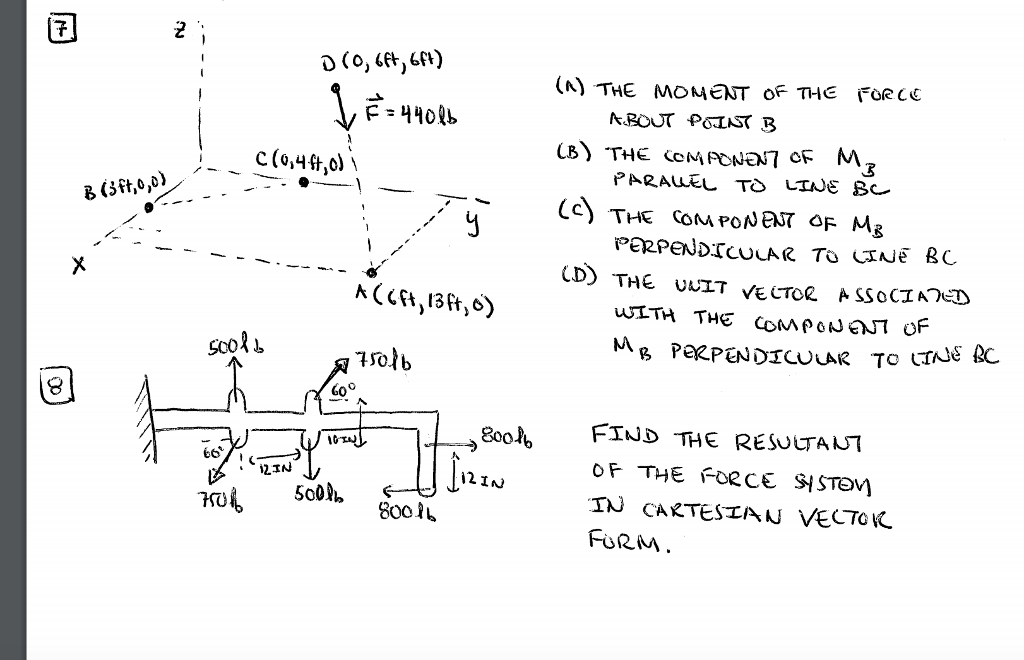 7
Z
D (0, 6ft, 6ft)
F = 440lb
C (0, 4ft, 0)
B (3ft, 0, 0)
y
X
A (6ft, 13ft, 0)
(A) THE MOMENT OF THE FORCE
ABOUT POINT B
(B) THE COMPONENT OF MB
PARALLEL TO LINE BC
(C) THE COMPONENT OF MB
PERPENDICULAR TO LINE BC
(D) THE UNIT VECTOR ASSOCIATED
WITH THE COMPONENT OF
MB PERPENDICULAR TO LINE BC
8
500lb
750lb
60°
10IN
800lb
60°
12IN
12IN
750lb
500lb
800lb
FIND THE RESULTANT
OF THE FORCE SYSTEM
IN CARTESIAN VECTOR
FORM.